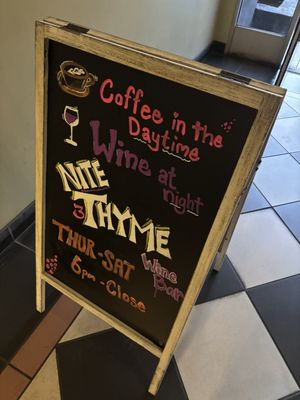 Coffee in the
Daytime
Wine at
night
NiTE
3 THYME
Wine
Bar
THUR-SAT
6pm-Close